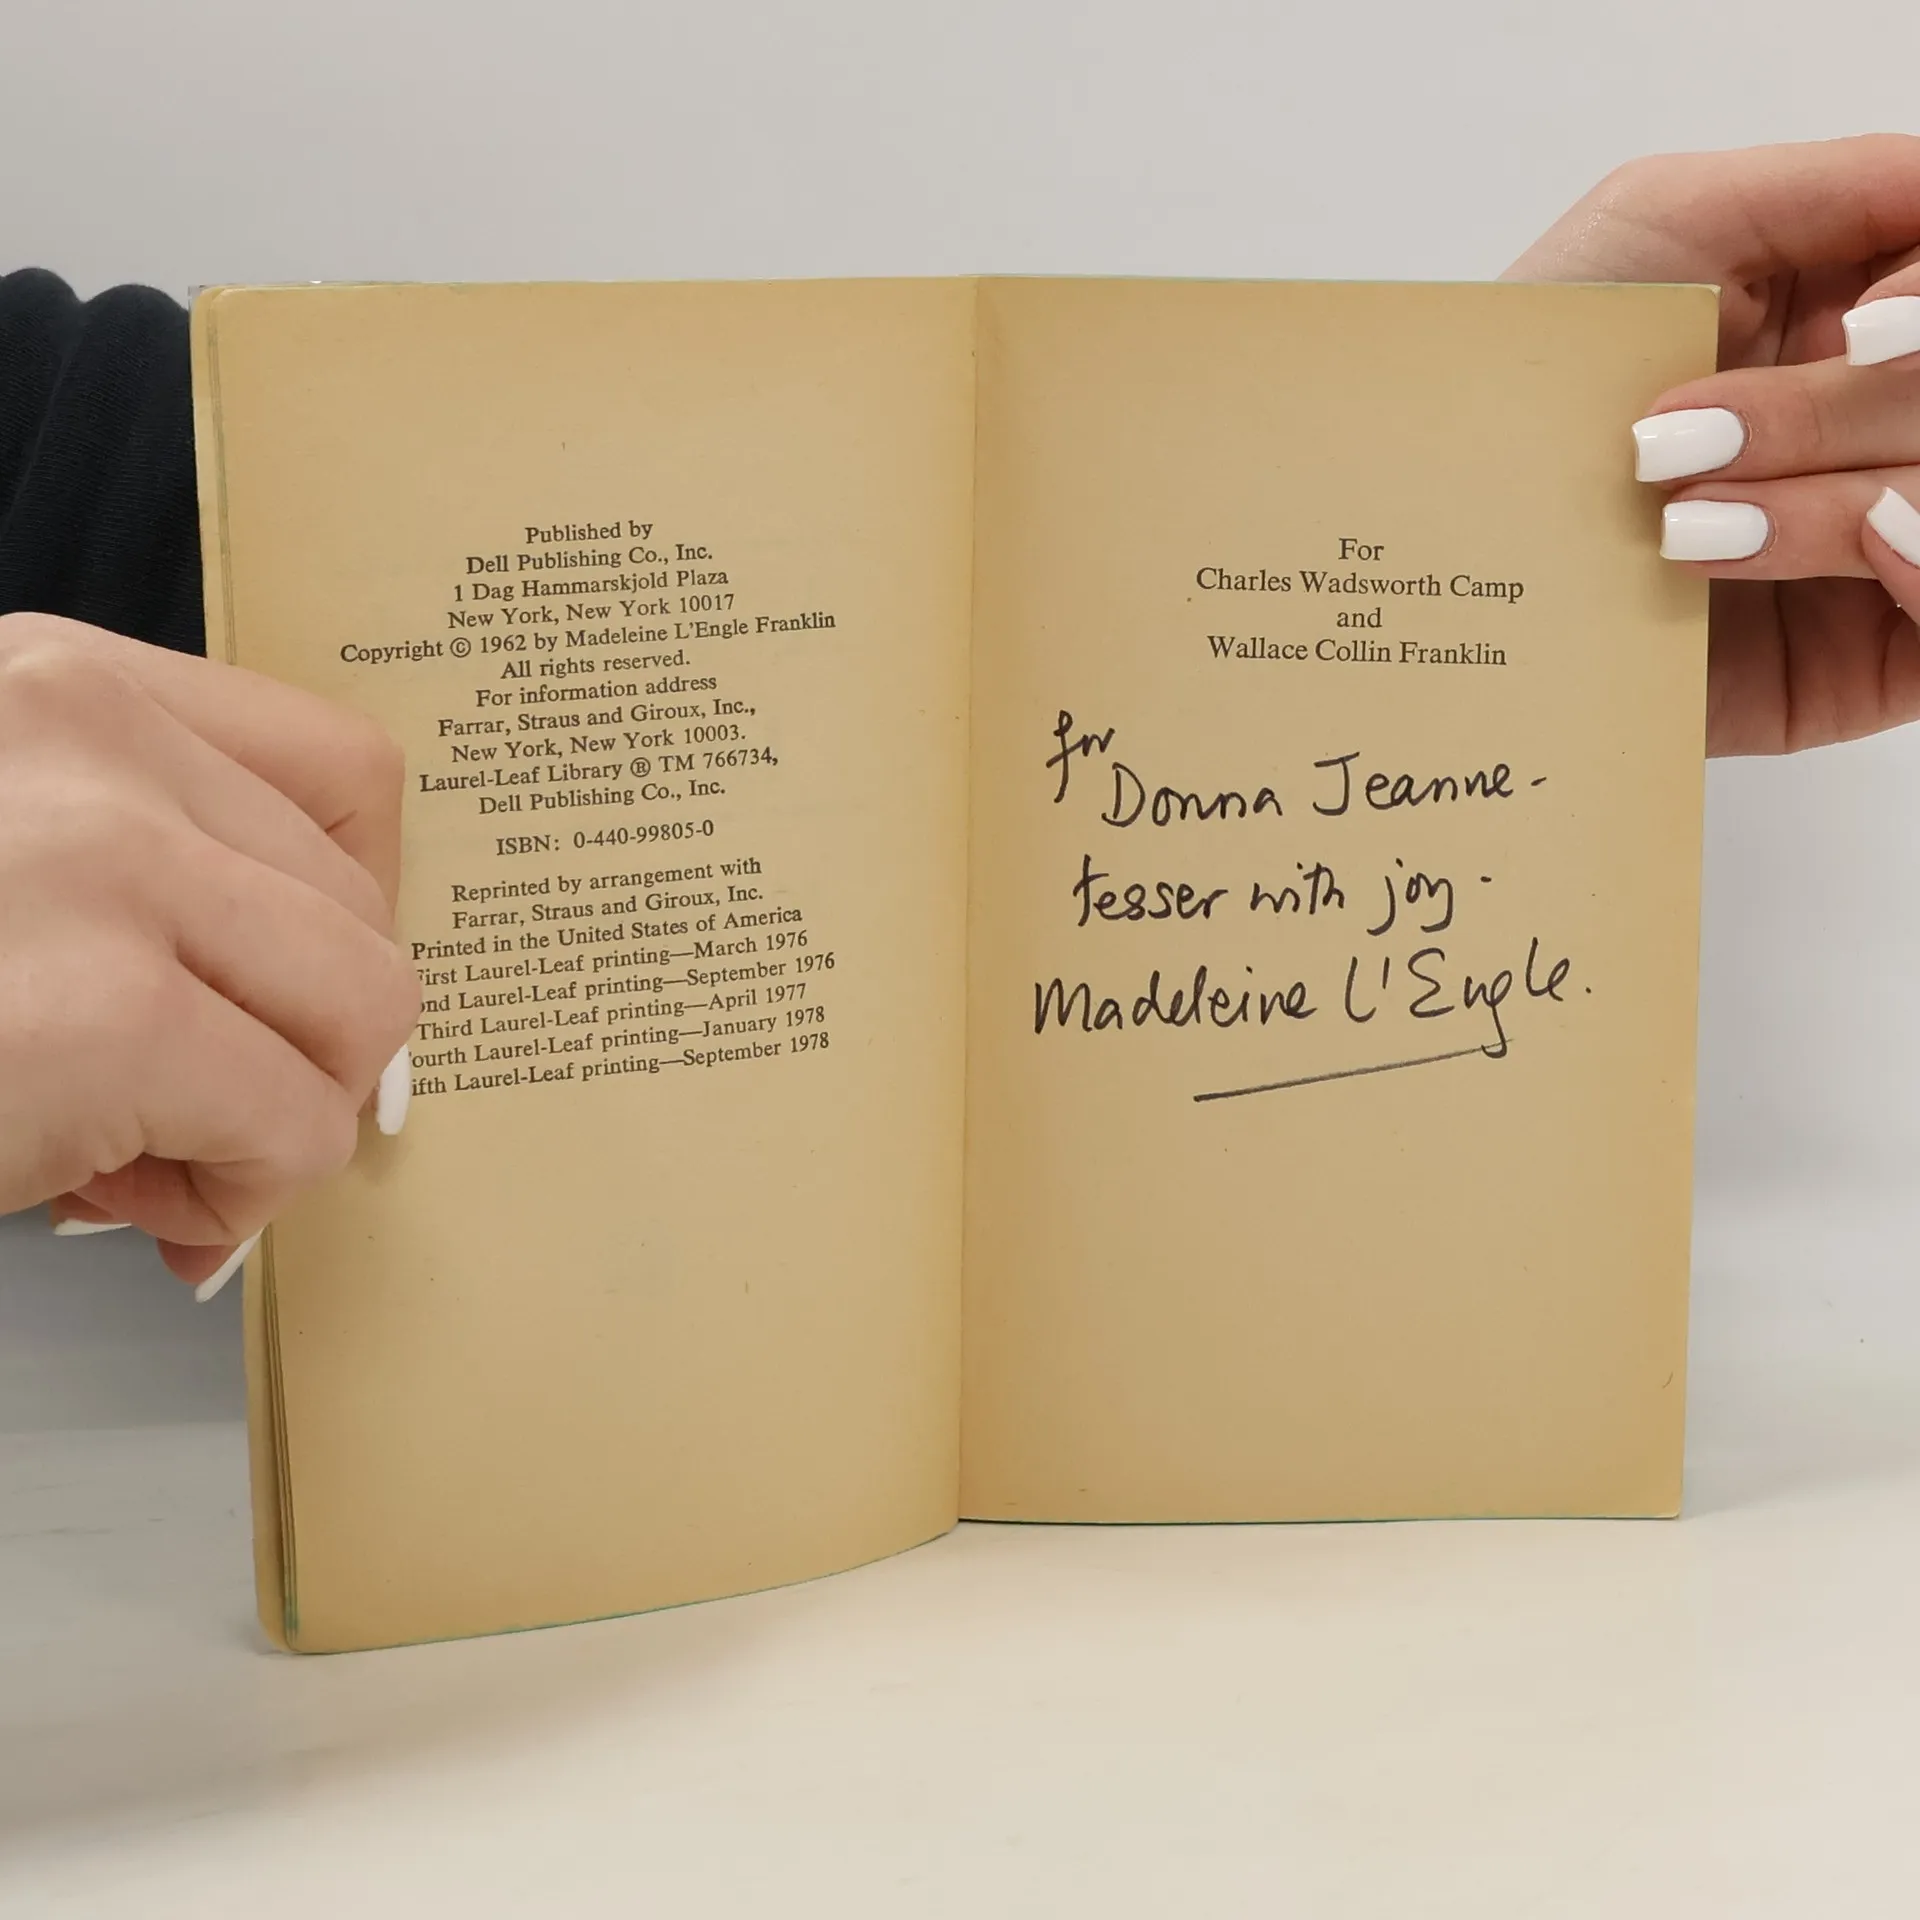 Published by
Dell Publishing Co., Inc.
1 Dag Hammarskjold Plaza
New York, New York 10017
Copyright © 1962 by Madeleine L'Engle Franklin
All rights reserved.
For information address
Farrar, Straus and Giroux, Inc.,
New York, New York 10003.
Laurel-Leaf Library ® TM 766734,
Dell Publishing Co., Inc.
ISBN: 0-440-99805-0
Reprinted by arrangement with
Farrar, Straus and Giroux, Inc.
Printed in the United States of America
irst Laurel-Leaf printing—March 1976
nd Laurel-Leaf printing—September 1976
Third Laurel-Leaf printing—April 1977
ourth Laurel-Leaf printing—January 1978
ifth Laurel-Leaf printing—September 1978
For
Charles Wadsworth Camp
and
Wallace Collin Franklin
for
Donna Jeanne -
tesser with joy -
Madeleine L'Engle.